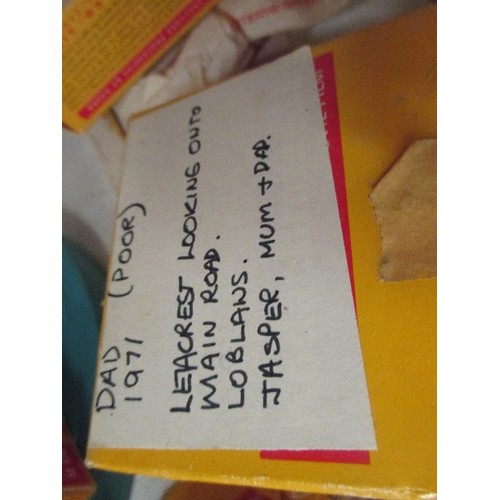 DAD (POOR)
1971
LEACREST LOOKING ONTO
MAIN ROAD.
LOBLANS.
JASPER, MUM + DAD.